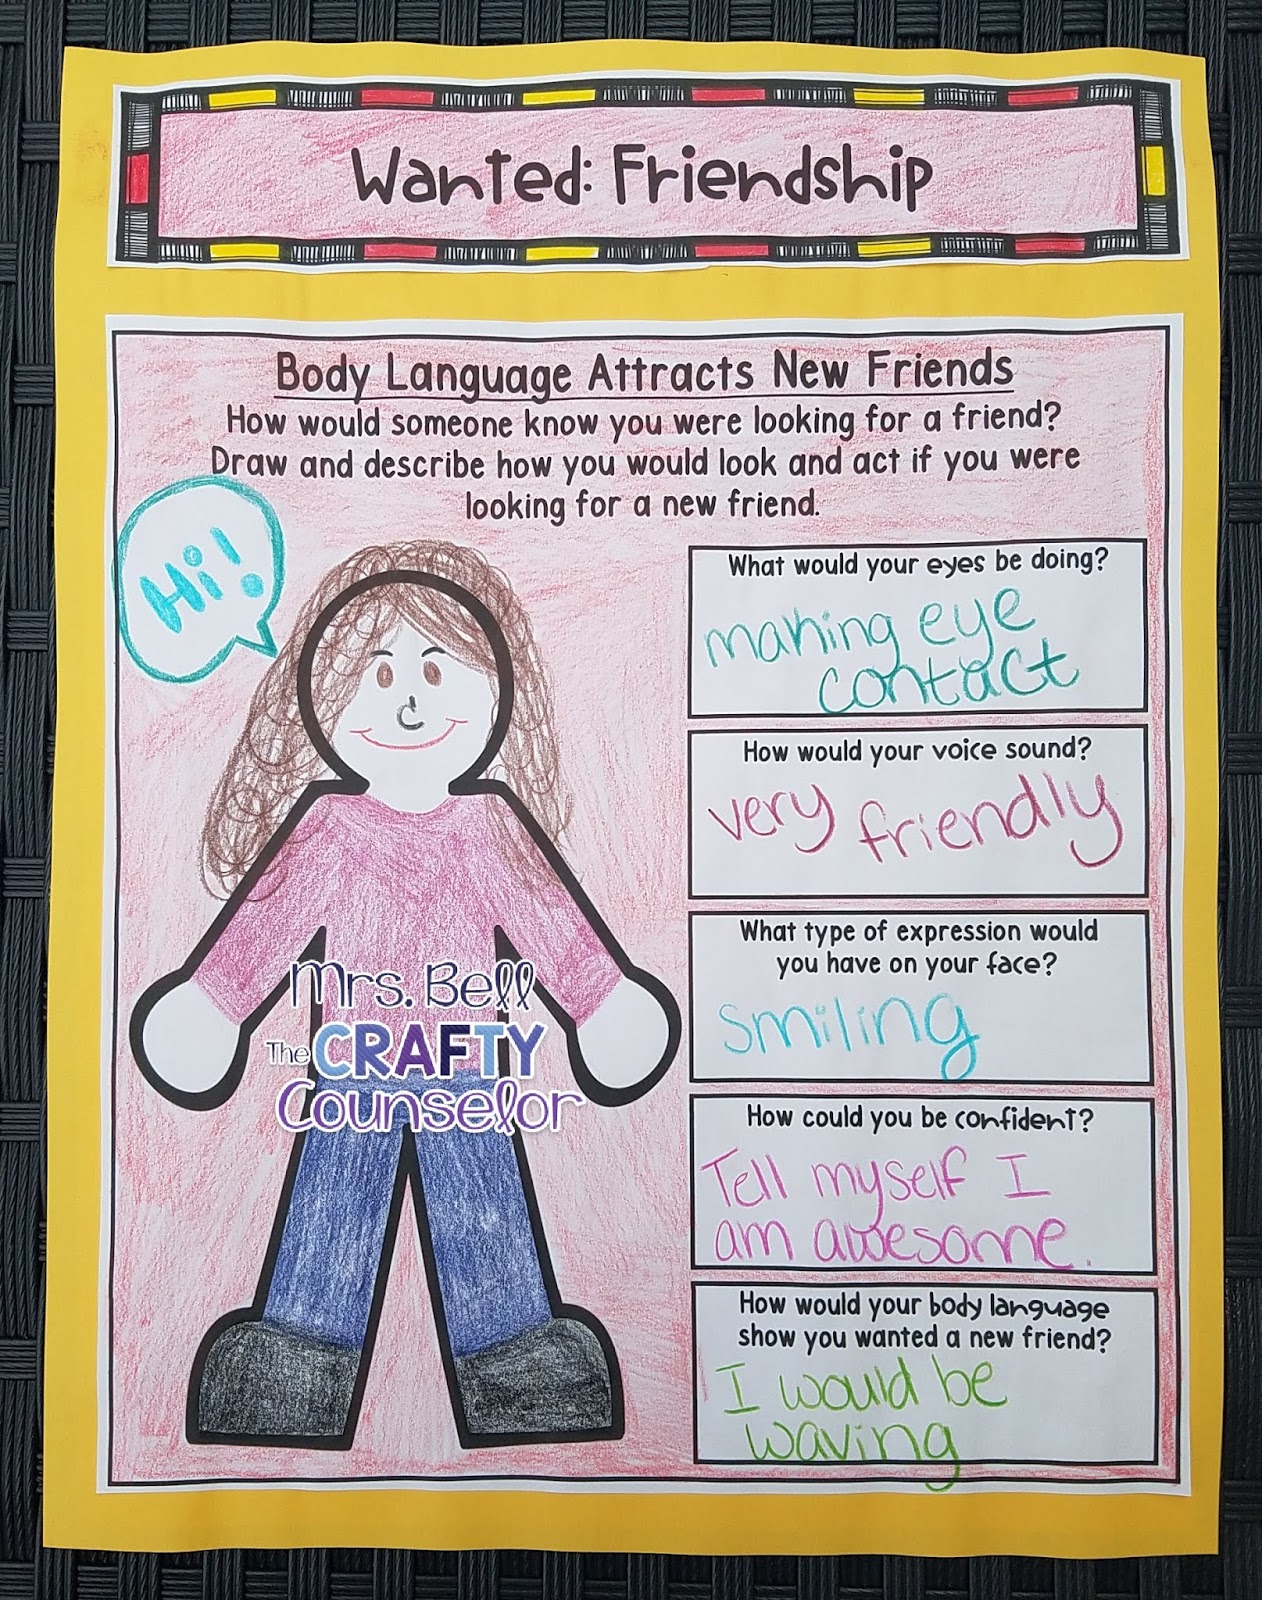 Wanted: Friendship
Body Language Attracts New Friends
How would someone know you were looking for a friend?
Draw and describe how you would look and act if you were
looking for a new friend.
Hi!
What would your eyes be doing?
making eye
contact
How would your voice sound?
very friendly
What type of expression would
you have on your face?
smiling
How could you be confident?
Tell myself I
am awesome.
How would your body language
show you wanted a new friend?
I would be
waving
Mrs. Bell
The CRAFTY
Counselor